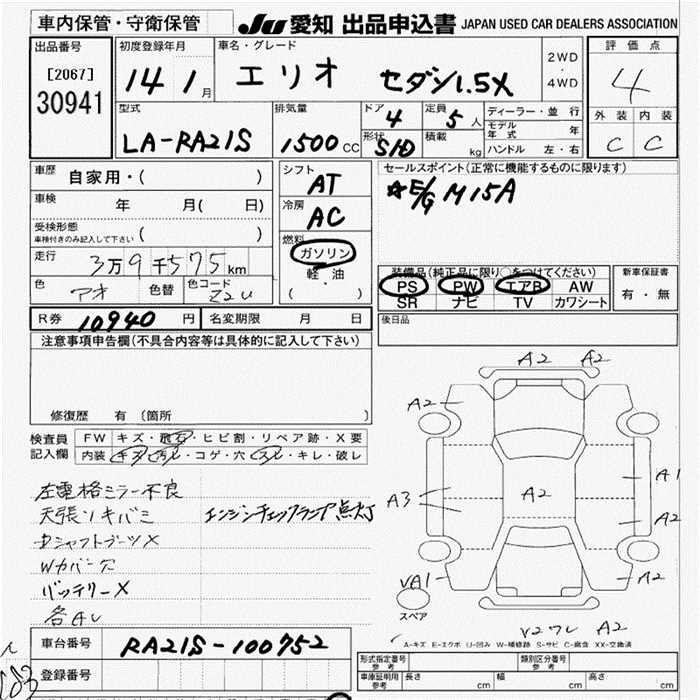 車内保管・守衛保管
JU 愛知 出品申込書 JAPAN USED CAR DEALERS ASSOCIATION
出品番号
[2067]
30941
初度登録年月
14 1月
車名・グレード
エリオ セダン1.5X
2WD
・
4WD
評価点
4
外装 内装
C C
型式
LA-RA21S
排気量
1500 CC
ドア
4
形状
S/D
定員
5人
積載
kg
ディーラー・並行
モデル年式 年
ハンドル 左・右
車歴
自家用・( )
車検
年 月( 日)
受検形態
車検付きのみ記入して下さい ( )
走行
3万9千575km
色
アオ 色替
色コード
Z2U
シフト
AT
冷房
AC
燃料
ガソリン
軽油
・
( )
セールスポイント(正常に機能するものに限ります)
☆E/G M15A
装備品(純正品に限り○をつけてください)
PS PW エアB AW
SR ナビ TV カワシート
新車保証書
有・無
R券 10940 円
名変期限 月 日
後日品
注意事項申告欄(不具合内容等は具体的に記入して下さい)
修復歴 有 (箇所
検査員
記入欄
FW キズ・飛石・ヒビ割・リペア跡・X要
内装 キズ・汚レ・コゲ・穴・スレ・キレ・破レ
左電格ミラー不良
天張リキバミ エンジンチェックランプ点灯
シャフトブーツX
Wカバー穴
バッテリーX
各
A2 A2
A2
A1
A3
A2
A2
VA1
A2
スペア
A2
A-キズ E-エクボ U-凹み W-補修跡 S-サビ C-腐食 XX-交換済
車台番号
RA21S-100752
登録番号
型式指定番号
参考
類別区分番号
参考
車庫証明用
参考
長さ cm 幅 cm 高さ cm